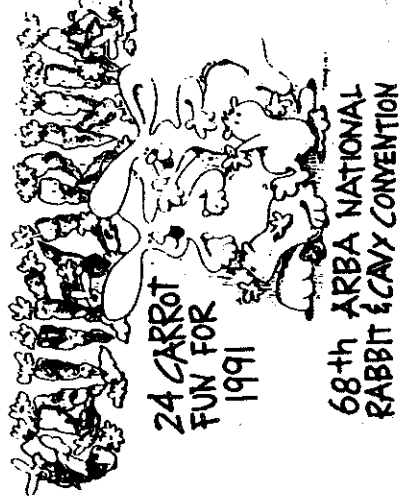 24 CARROT
FUN FOR
1991
68th ARBA NATIONAL
RABBIT & CAVY CONVENTION